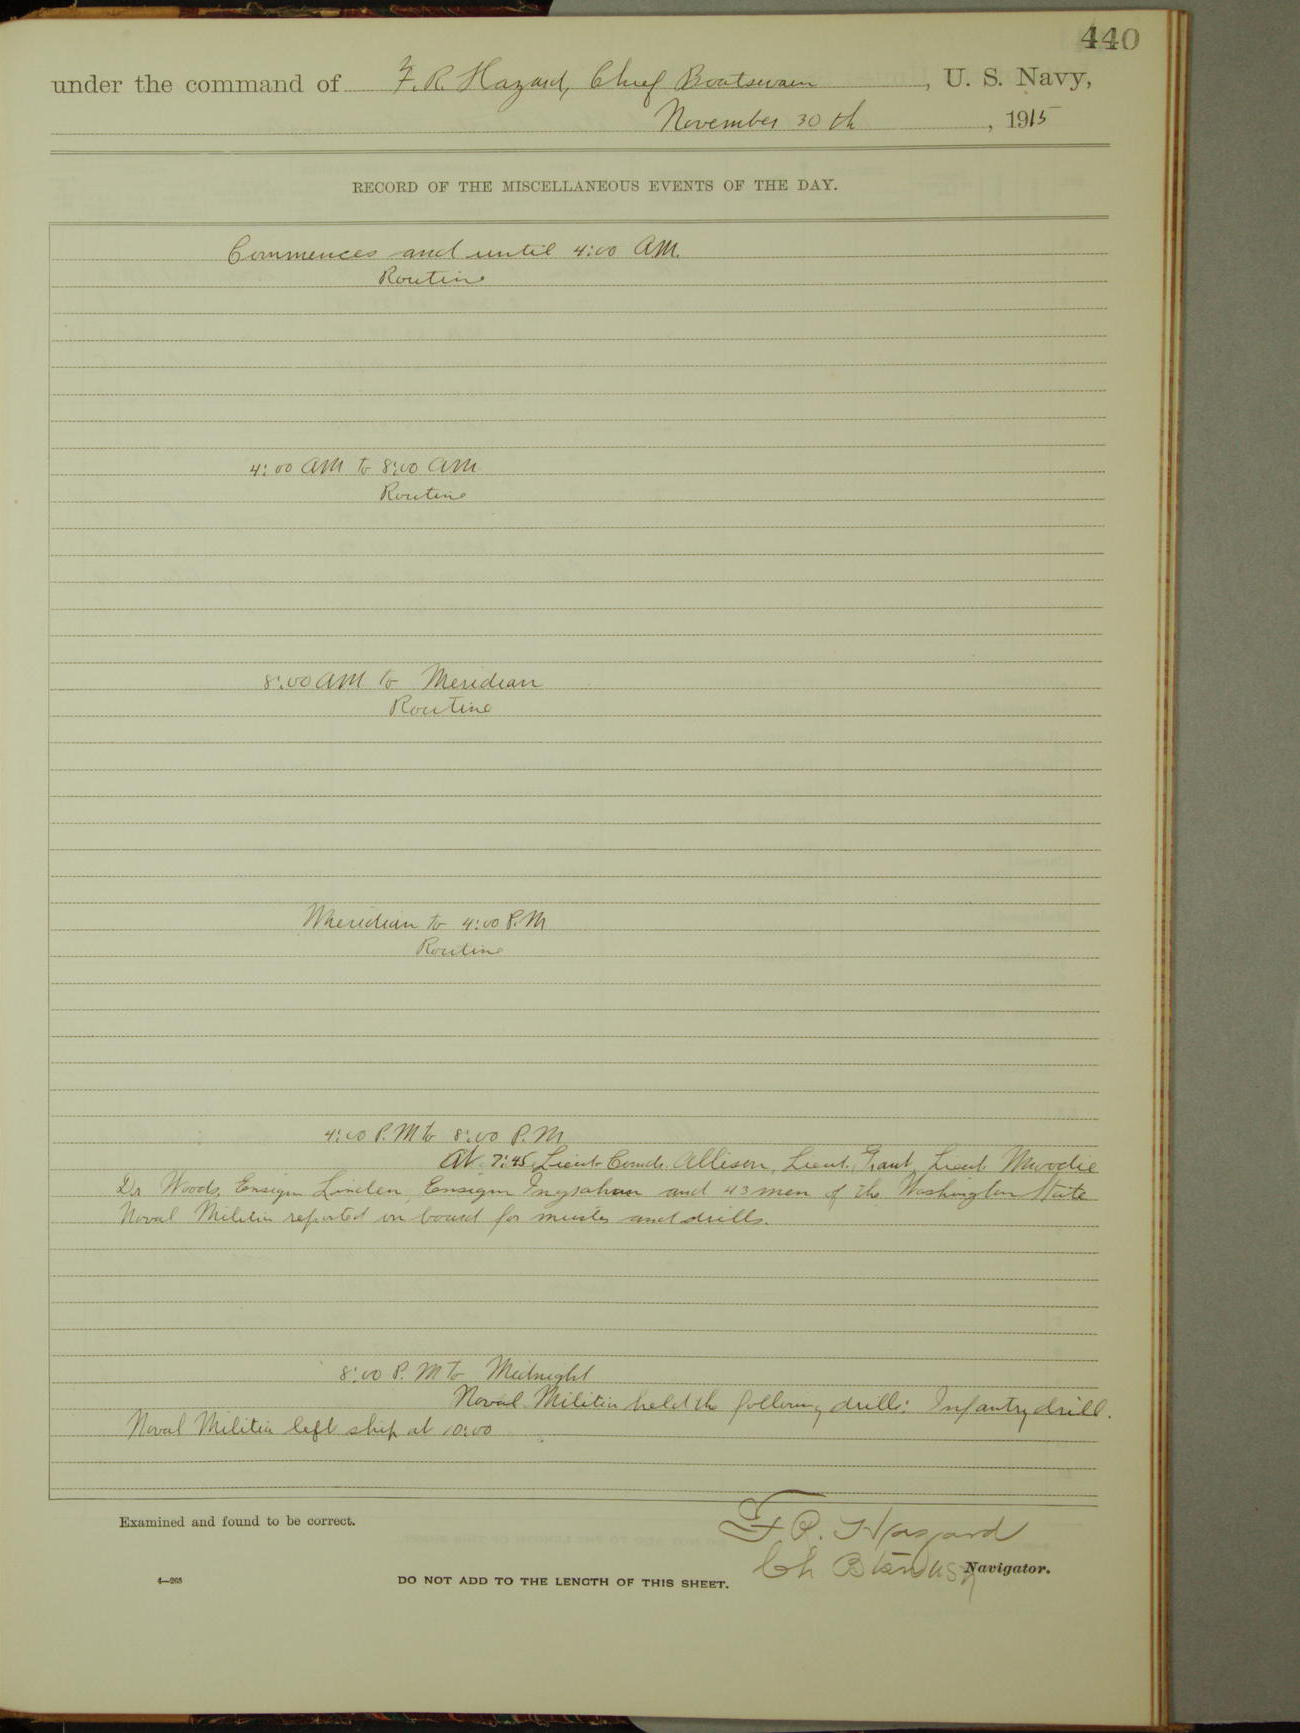 440
under the command of F. R. Hazard, Chief Boatswain, U. S. Navy,
November 30th, 1915
RECORD OF THE MISCELLANEOUS EVENTS OF THE DAY.
Commences and until 4:00 AM.
Routine
4:00 AM to 8:00 AM
Routine
8:00 AM to Meridian
Routine
Meridian to 4:00 P.M
Routine
4:00 P.M to 8:00 P.M
At 7:45 Lieut. Comdr. Allison, Lieut. Grant, Lieut. Moodie
Dr Wood, Ensign Linden, Ensign and 43 men of the Washington State
Naval Militia reported on board for muster and drills.
8:00 P.M to Midnight
Naval Militia held the following drills: Infantry drill.
Naval Militia left ship at 10:00
Examined and found to be correct.
F. R. Hazard
Ch Btswn USN Navigator.
4—268
DO NOT ADD TO THE LENGTH OF THIS SHEET.